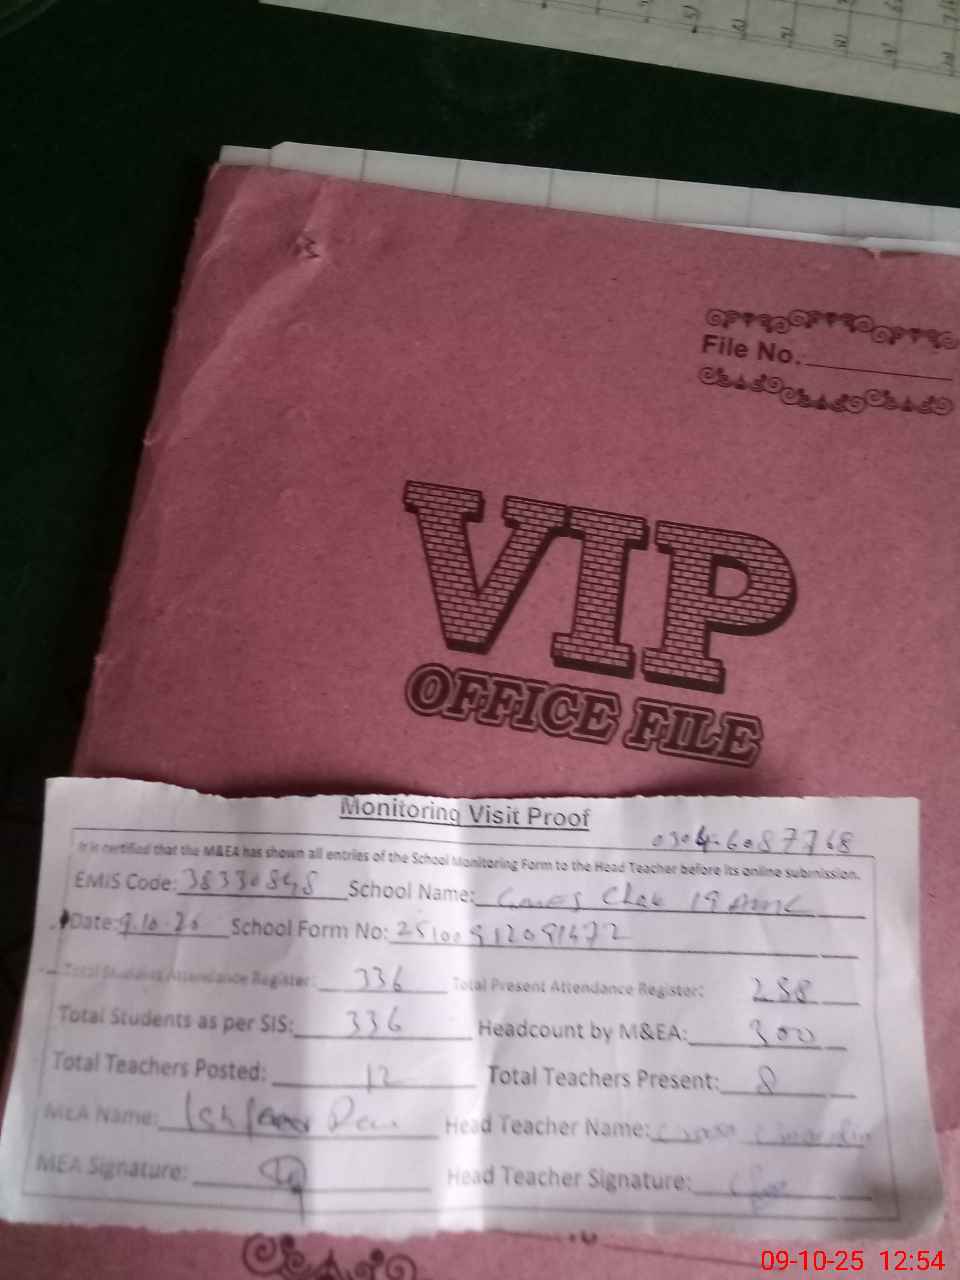 File No.
VIP
OFFICE FILE
Monitoring Visit Proof
0304-6087768
It is certified that the M&EA has shown all entries of the School Monitoring Form to the Head Teacher before its online submission.
EMIS Code: 38330848 School Name: Chak 19
Date: School Form No:
Total Students Attendance Register: 336 Total Present Attendance Register: 288
Total Students as per SIS: 336 Headcount by M&EA: 300
Total Teachers Posted: 12 Total Teachers Present: 8
MEA Name: Head Teacher Name:
MEA Signature: Head Teacher Signature:
09-10-25 12:54